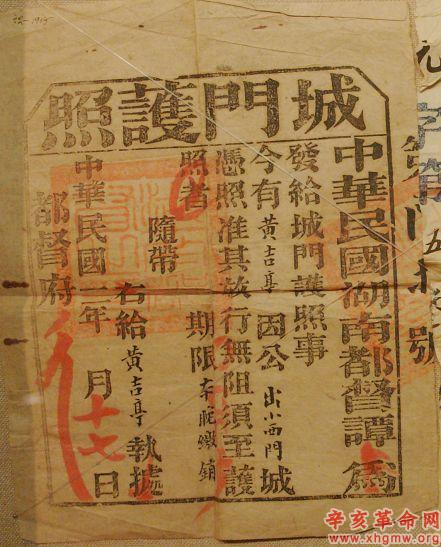 城門護照
中華民國湖南都督譚 為
發給城門護照事
今有黃吉亭因公出小西門城
憑照准其放行無阻須至護
照者
隨帶 期限本晚繳銷
右給黃吉亭執據
中華民國二年 月十七日
都督府
行
辛亥革命网
www.xhgmw.org